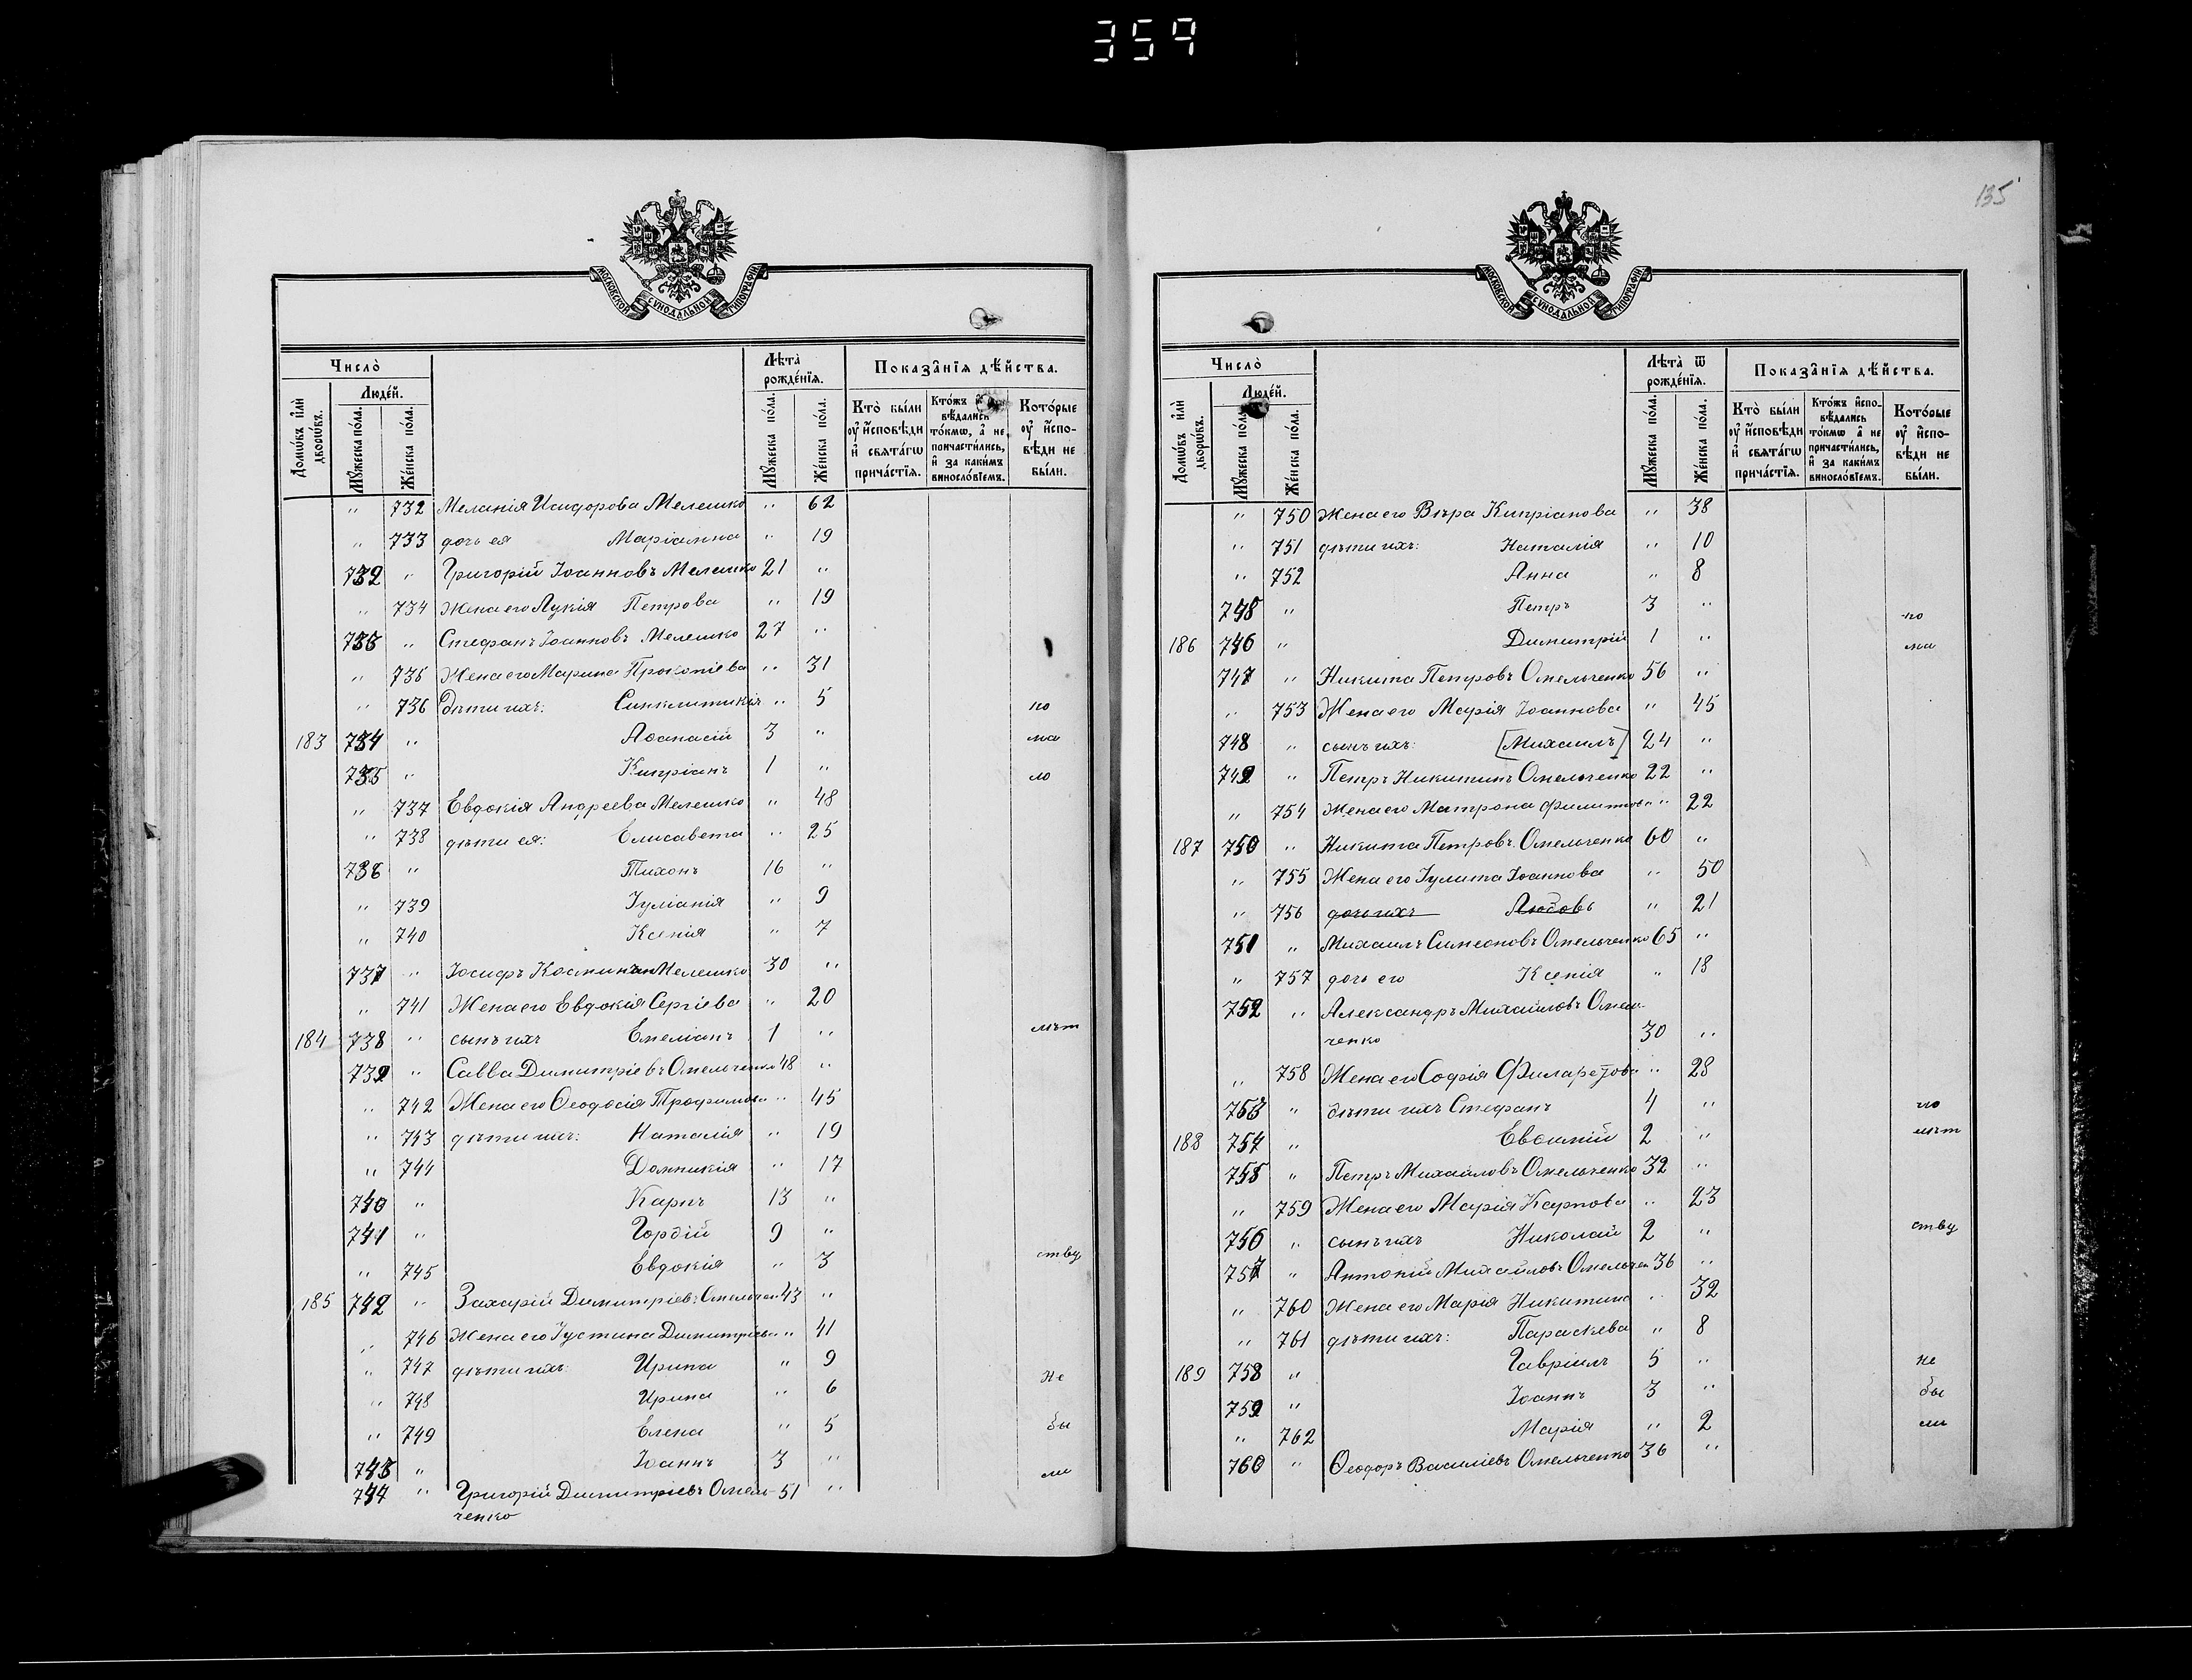 359
МОСКОВСКОЙ СѴНОДАЛЬНОЙ ТИПОГРАФІИ
Число̀
Лѣта̀
рожде́нїѧ.
Показа̑нїѧ дѣ́йства.
Домѡ́въ и҆лѝ дворѡ́въ.
Люде́й.
Мꙋ́жеска по́ла.
Же́нска по́ла.
Мꙋ́жеска по́ла.
Же́нска по́ла.
Кто̀ бы́ли ᲂу҆ и҆сповѣ́ди и҆ свѧта́гѡ прича́стїѧ.
то́кмѡ, а҆ не причасти́лись, и҆ за каки́мъ винослові́емъ.
Кото́рые ᲂу҆ и҆сповѣ́ди не бы́ли.
" 732 Меланія Исидорова Мелешко " 62
" 733 дочь ея Маріамна " 19
732 " Григорій Іоанновъ Мелешко 21 "
" 734 Жена его Лукія Петрова " 19
733 " Стефанъ Іоанновъ Мелешко 27 "
" 735 Жена его Марина Прокопіева " 31
" 736 дѣти ихъ: Синклитикія " 5 по
183 734 " Аѳанасій 3 " ма
735 " Кипріанъ 1 " ло
" 737 Евдокія Андреева Мелешко " 48
" 738 дѣти ея: Елисавета " 25
736 " Тихонъ 16 "
" 739 Іуліанія " 9
" 740 Ксенія " 7
737 " Іосифъ Косминъ Мелешко 30 "
" 741 Жена его Евдокія Сергіева " 20
184 738 " сынъ ихъ Емеліанъ 1 " лѣт
739 " Савва Димитріевъ Омельченко 48 "
" 742 Жена его Ѳеодосія Трофимова " 45
" 743 дѣти ихъ: Наталія " 19
" 744 Домникія " 17
740 " Карпъ 13 "
741 " Гордій 9 "
" 745 Евдокія " 3 ству
185 742 " Захарій Димитріевъ Омельчен 43 "
" 746 Жена его Іустина Димитріева " 41
" 747 дѣти ихъ: Ирина " 9 не
" 748 Ирина " 6
" 749 Елена " 5 бы
743 " Іоаннъ 3 " ли
744 " Григорій Димитріевъ Омель- 51 "
ченко
135
МОСКОВСКОЙ СѴНОДАЛЬНОЙ ТИПОГРАФІИ
Число̀
Лѣта̀ ѿ
рожде́нїѧ.
Показа̑нїѧ дѣ́йства.
Домѡ́въ и҆лѝ дворѡ́въ.
Люде́й.
Мꙋ́жеска по́ла.
Же́нска по́ла.
Мꙋ́жеска по́ла.
Же́нска по́ла.
Кто̀ бы́ли ᲂу҆ и҆сповѣ́ди и҆ свѧта́гѡ прича́стїѧ.
Кто́жъ и҆сповѣ́дались то́кмѡ а҆ не причасти́лись, и҆ за каки́мъ винослові́емъ.
Кото́рые ᲂу҆ и҆сповѣ́ди не бы́ли.
" 750 Жена его Вѣра Кипріанова " 38
" 751 дѣти ихъ: Наталія " 10
" 752 Анна " 8
745 " Петръ 3 " по
186 746 " Димитрій 1 " ма
747 " Никита Петровъ Омельченко 56 "
" 753 Жена его Марія Іоаннова " 45
748 " сынъ ихъ: [Михаилъ] 24 "
749 " Петръ Никитинъ Омельченко 22 "
" 754 Жена его Матрона " 22
187 750 " Никита Петровъ Омельченко 60 "
" 755 Жена его Іулита Іоаннова " 50
" 756 дочь ихъ Любовь " 21
751 " Михаилъ Симеоновъ Омельченко 65 "
" 757 дочь его Ксенія " 18
752 " Александръ Михайловъ Омель-
ченко 30 "
" 758 Жена его Софія Филаретова " 28
753 " дѣти ихъ Стефанъ 4 " по
188 754 " Евѳимій 2 " лѣт
755 " Петръ Михайловъ Омельченко 32 "
" 759 Жена его Марія Карпова " 23
756 " сынъ ихъ Николай 2 " ству
757 " Антоній Михайловъ Омельчен 36 "
" 760 Жена его Марія Никитина " 32
" 761 дѣти ихъ: Параскева " 8
189 758 " Гавріилъ 5 " не
759 " Іоаннъ 3 " бы
" 762 Марія " 2 ли
760 " Ѳеодоръ Василіевъ Омельченко 36 "